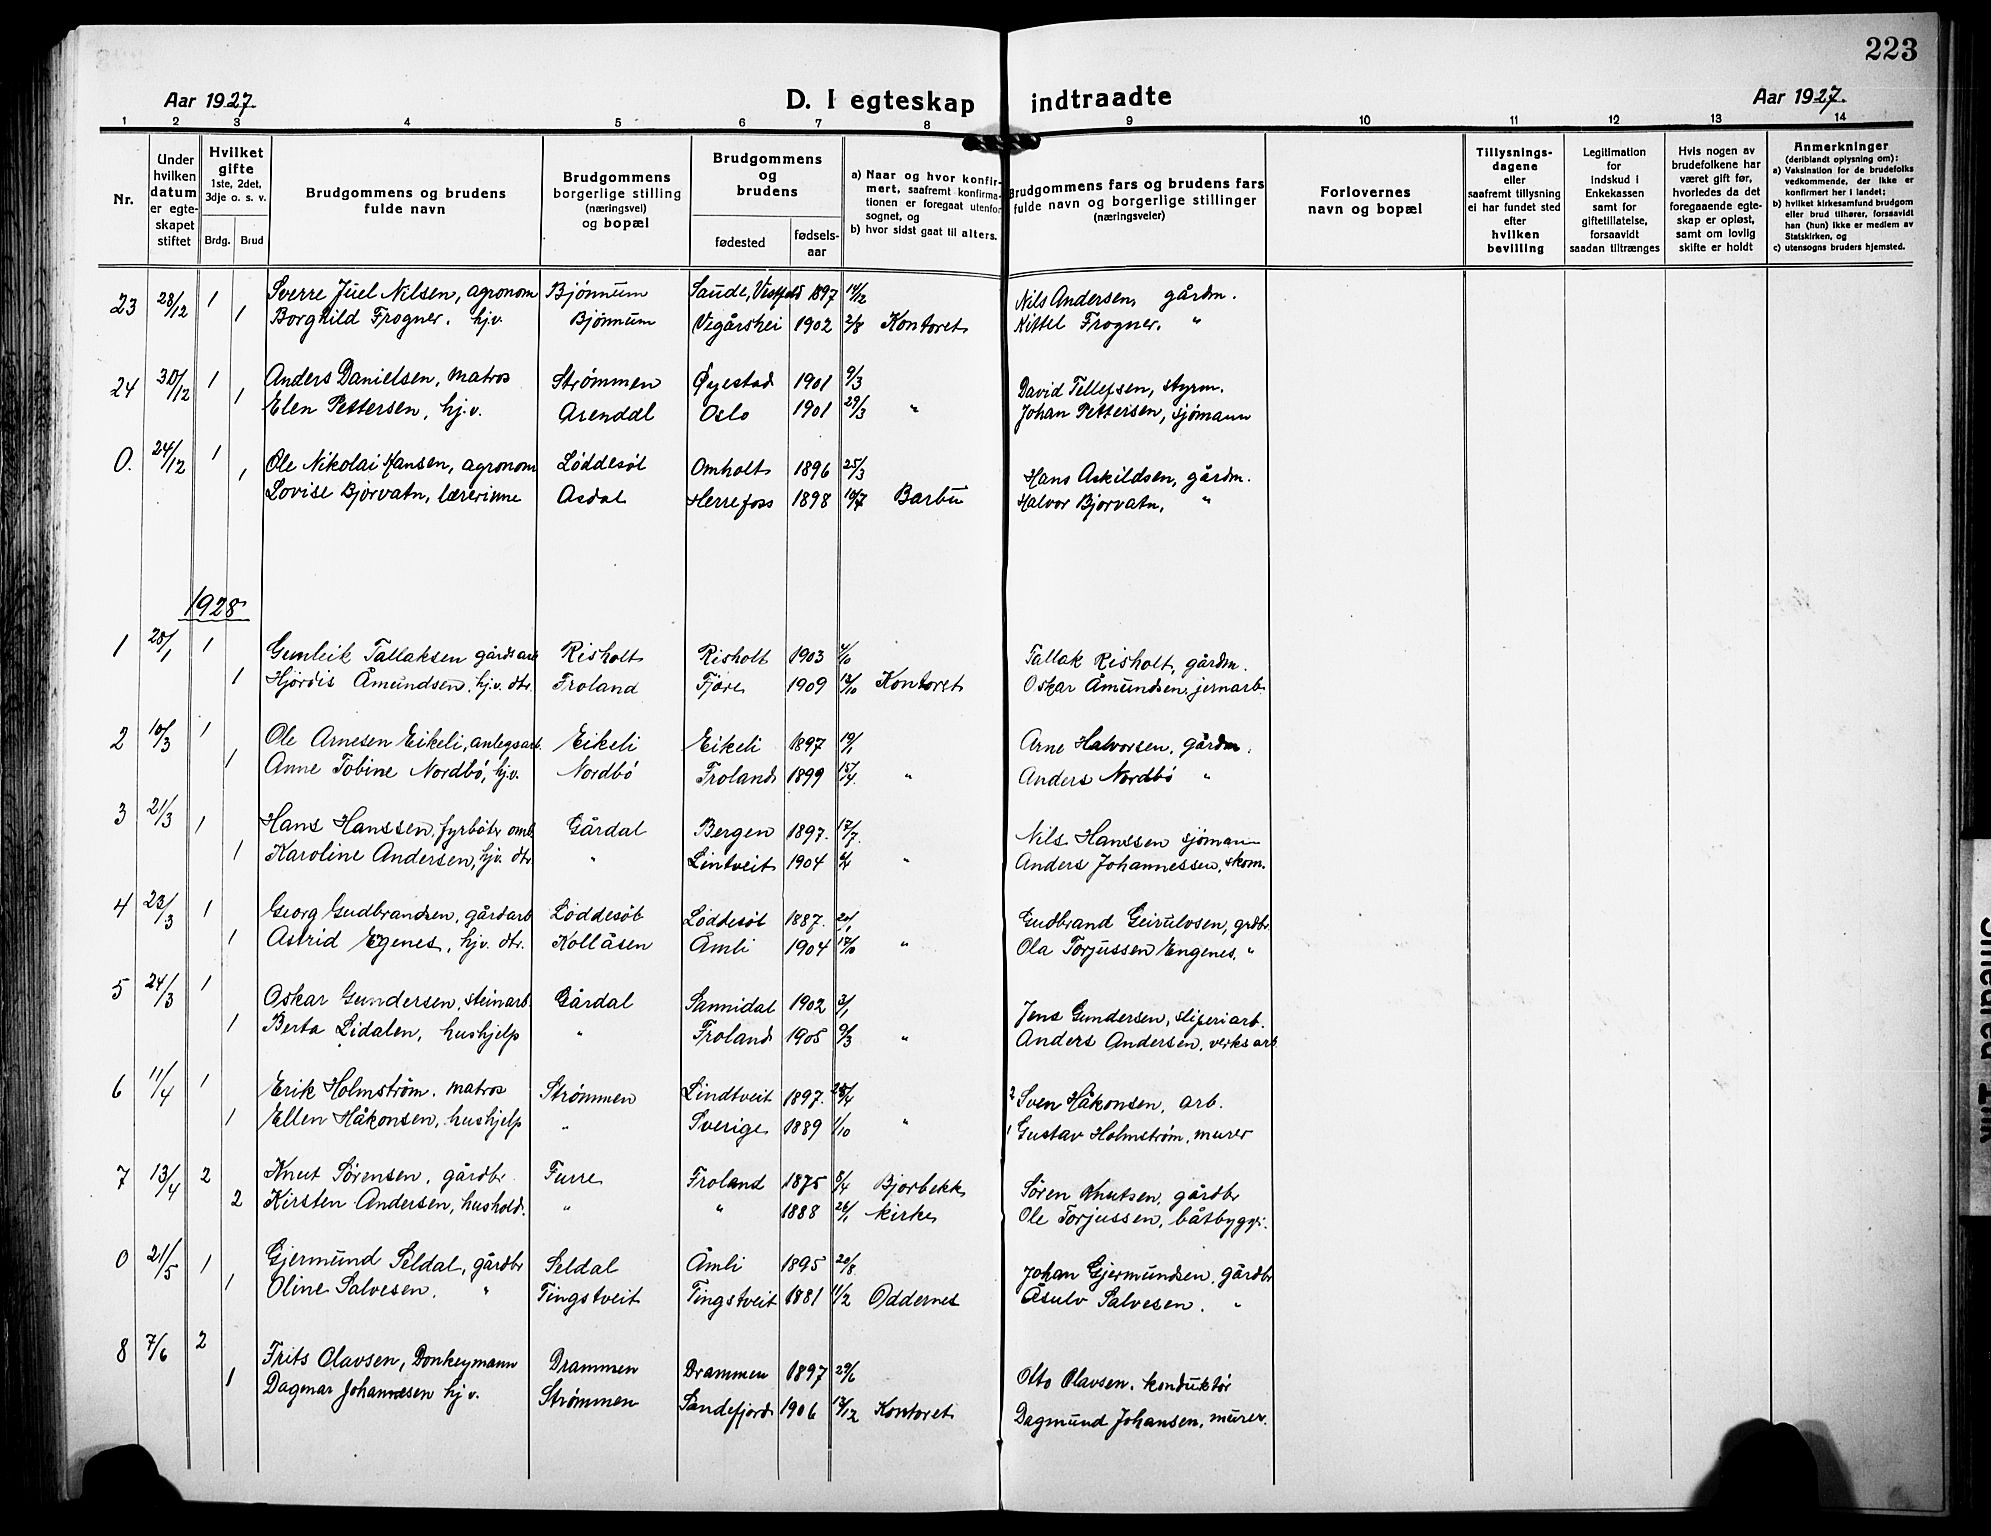 223
Aar 1927. D. I egteskap indtraadte Aar 1927.
1 2 3 4 5 6 7 8 9 10 11 12 13 14
Nr.
Under hvilken datum er egteskapet stiftet
Hvilket gifte 1ste, 2det, 3dje o. s. v.
Brdg. Brud
Brudgommens og brudens fulde navn
Brudgommens borgerlige stilling (næringsvei) og bopæl
Brudgommens og brudens
fødested fødselsaar
a) Naar og hvor konfirmert, saafremt konfirmationen er foregaat utenfor sognet, og
b) hvor sidst gaat til alters.
Brudgommens fars og brudens fars fulde navn og borgerlige stillinger (næringsveier)
Forlovernes navn og bopæl
Tillysningsdagene eller saafremt tillysning ei har fundet sted efter hvilken bevilling
Legitimation for indskud i Enkekassen samt for giftetillatelse, forsaavidt saadan tiltrænges
Hvis nogen av brudefolkene har været gift før, hvorledes da det foregaaende egteskap er opløst, samt om lovlig skifte er holdt
Anmerkninger (deriblandt oplysning om):
a) Vaksination for de brudefolks vedkommende, der ikke er konfirmert her i landet;
b) hvilket kirkesamfund brudgom eller brud tilhører, forsaavidt han (hun) ikke er medlem av Statskirken, og
c) utensogns bruders hjemsted.
23 28/12 1 Sverre Juel Nilsen, agronom Bjønnum Saude, Vestfold 1897 14/12 Nils Andersen, gårdm.
1 Borghild Frogner. hj.v. Bjønnum Vegårshei 1902 2/8 Kontoret Kittel Frogner. "
24 30/12 1 Anders Danielsen, matros Strømmen Øyestad 1901 9/3 David Tellefsen, styrm.
1 Elen Pettersen, hj.v. Arendal Oslo 1901 29/3 " Johan Pettersen, sjømann
0. 24/12 1 Ole Nikolai Hansen, agronom Løddesøl Omholt 1896 25/3 Hans Askildsen, gårdm.
1 Lovise Bjorvatn, lærerinne Asdal Herrefoss 1898 10/7 Barbu Halvor Bjorvatn, "
1928
1 28/1 1 Gunleik Tallaksen gårdsarb Risholt Risholt 1903 4/10 Tallak Risholt, gårdm.
1 Hjørdis Åmundsen, hj.v. dtr. Froland Fjøre 1909 12/10 Kontoret Oskar Åmundsen, jernarb.
2 10/3 1 Ole Arnesen Eikeli, anlegsarb. Eikeli Eikeli 1897 19/1 Arne Halvorsen, gårdm.
1 Anne Tobine Nordbø, hj.v. Nordbø Froland 1899 15/4 " Anders Nordbø "
3 21/3 1 Hans Hanssen, fyrbøter omb. Gårdal Bergen 1897. 17/7 Nils Hanssen sjømann
1 Karoline Andersen, hj.v. dtr. " Lintveit 1904 " Anders Johannessen, skom.
4 23/3 1 Georg Gudbrandsen, gårdarb Løddesøl Løddesøl 1887. Gudbrand Geirulvsen, grdbr.
1 Astrid Egenes, hj.v. dtr. Kollåsen Åmli 1904 12/10 " Ola Torjussen Engenes, "
5 24/3 1 Oskar Gundersen, steinarb Gårdal Sannidal 1902 3/1 Jens Gundersen, sliperiarb.
1 Berta Lidalen, hushjelp " Froland 1905 9/3 " Anders Andersen, verksarb.
6 11/4 1 Erik Holmstrøm. matros Strømmen Lindtveit 1897. 25/4 2 Sven Håkonsen, arb.
1 Ellen Håkonsen, hushjelp " Sverige 1889 1/10 " 1 Gustav Holmstrøm, murer
7 13/4 2 Knut Sørensen, gårdbr. Furre Froland 1875 8/4 Bjorbekk Søren Knutsen, gårdbr
2 Kirsten Andersen, hushold. " " 1888 26/1 kirke Ole Torjussen, båtbyggr.
0 21/5 1 Gjermund Seldal, gårdbr Seldal Åmli 1895 20/8. Johan Gjermundsen, gårdbr
1 Oline Salvesen. " Tingstveit Tingstveit 1881 11/2 Oddernes Åsulv Salvesen. "
8 7/6 2 Frits Olavsen, Donkeymann Drammen Drammen 1897 29/6 Otto Olavsen. konduktør
1 Dagmar Johannesen hj.v. Strømmen Sandefjord 1906 12/12 Kontoret Dagmund Johansen, murer.